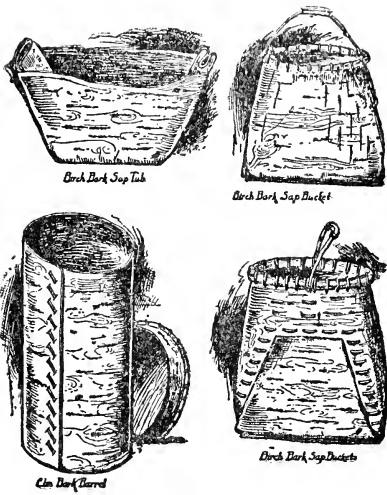 Birch Bark Sap Tub
Birch Bark Sap Bucket
Elm Bark Barrel
Birch Bark Sap Buckets